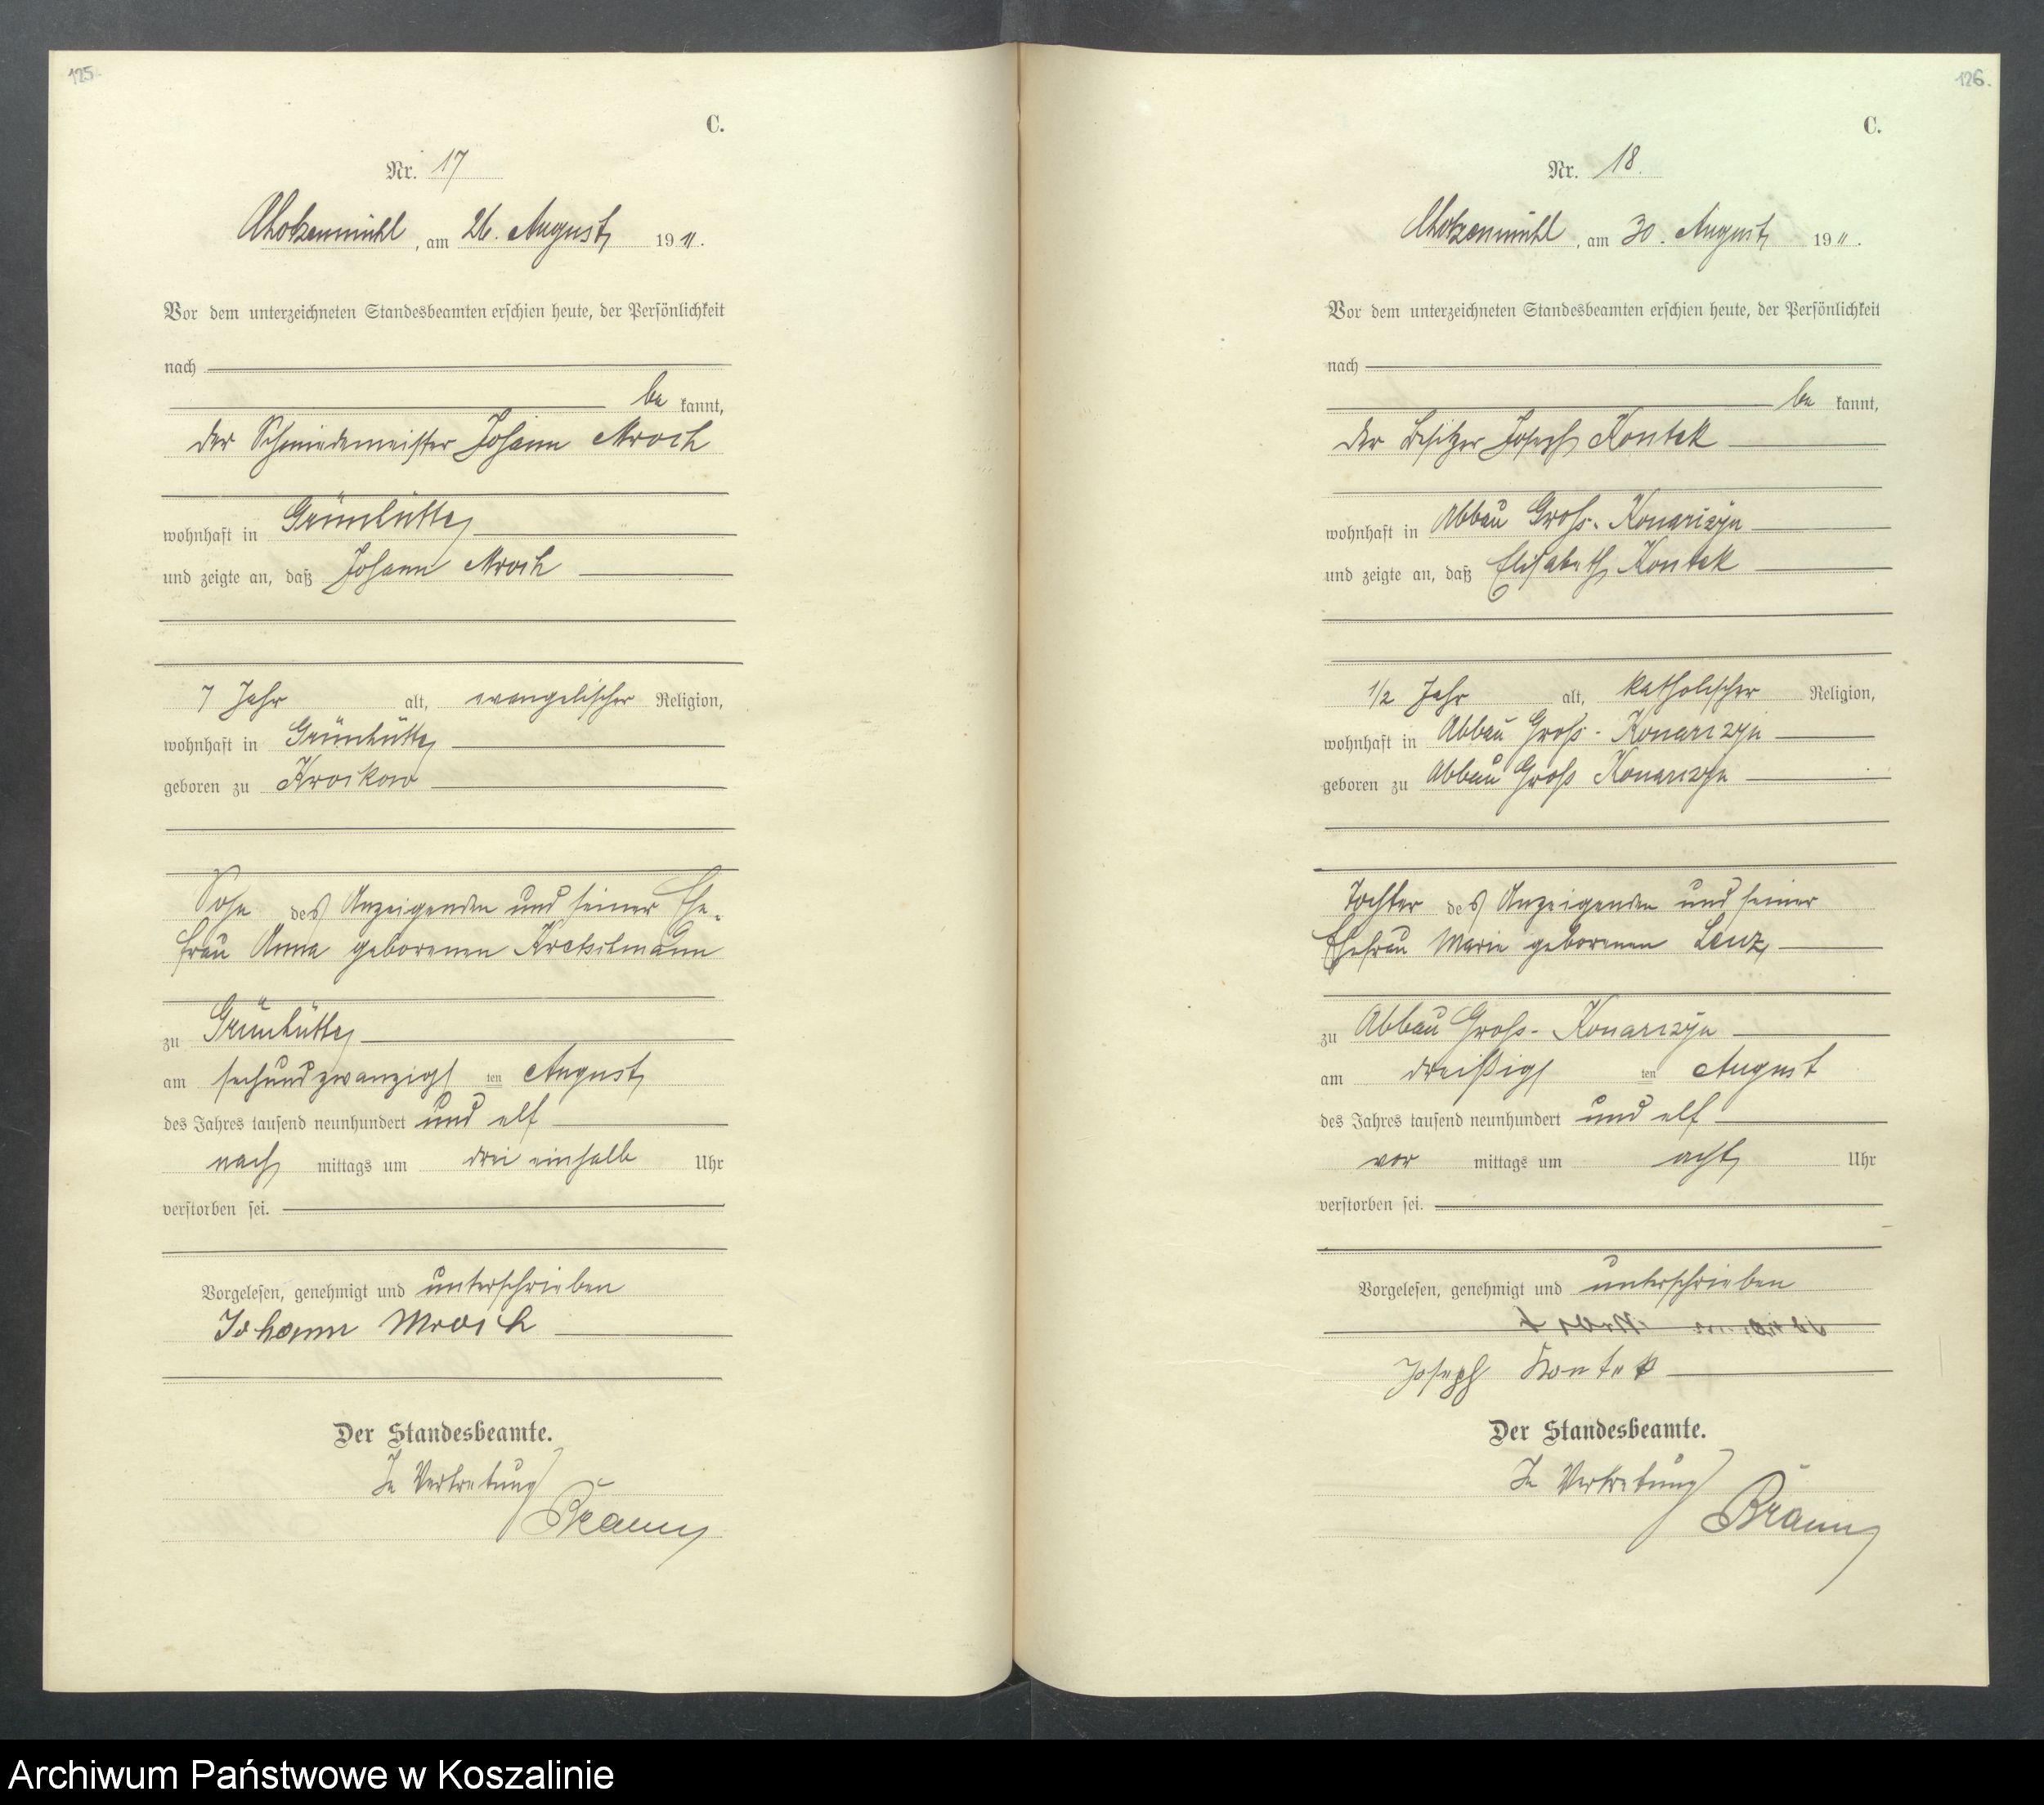 125.
C.
Nr. 17
Chotzenmühl, am 26. August 1911.
Vor dem unterzeichneten Standesbeamten erschien heute, der Persönlichkeit
nach
be kannt,
der Schmiedemeister Johann Mroch
wohnhaft in Grünhütte
und zeigte an, daß Johann Mroch
7 Jahr alt, evangelischer Religion,
wohnhaft in Grünhütte
geboren zu Krockow
Sohn des Anzeigenden und seiner Ehe-
frau Anna geborenen Kretschmann
zu Grünhütte
am sechundzwanzigsten August
des Jahres tausend neunhundert und elf
nach mittags um drei einhalb Uhr
verstorben sei.
Vorgelesen, genehmigt und unterschrieben
Johann Mroch
Der Standesbeamte.
In Vertretung
Braun
126.
C.
Nr. 18.
Chotzenmühl, am 30. August 1911.
Vor dem unterzeichneten Standesbeamten erschien heute, der Persönlichkeit
nach
be kannt,
der Besitzer Joseph Kontek
wohnhaft in Abbau Groß-Konarczyn
und zeigte an, daß Elisabeth Kontek
1/2 Jahr alt, katholischer Religion,
wohnhaft in Abbau Groß-Konarczyn
geboren zu Abbau Groß Konarczyn
Tochter des Anzeigenden und seiner
Ehefrau Marie geborenen Lenz,
zu Abbau Groß-Konarczyn
am dreißigsten August
des Jahres tausend neunhundert und elf
vor mittags um acht Uhr
verstorben sei.
Vorgelesen, genehmigt und unterschrieben
Joseph Kontek
Der Standesbeamte.
In Vertretung
Braun
Archiwum Państwowe w Koszalinie